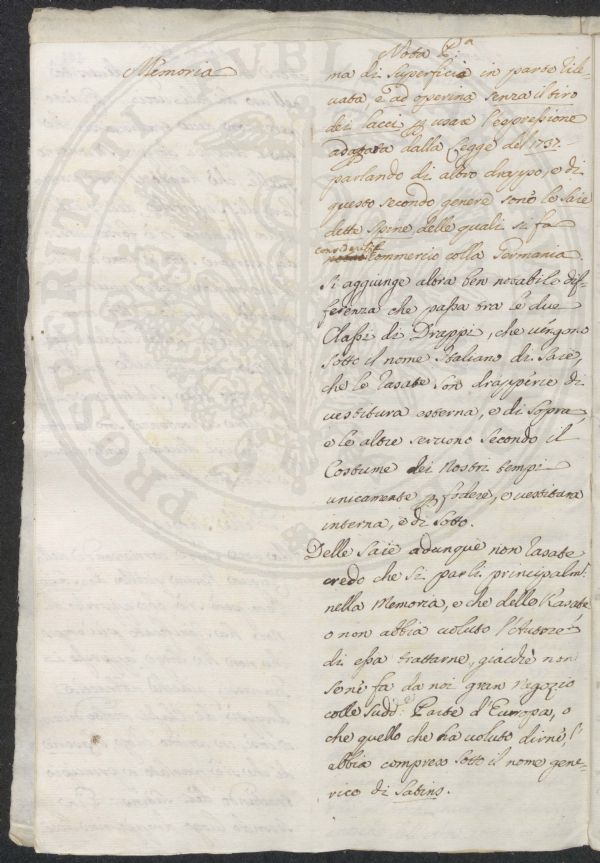 Memoria
Nota P.ª
ma di superficie in parte rile-
vata, e ad operina senza il tiro
dei lacci p usar l'espressione
adoprata dalla Legge del 1737.
parlando di altro drappo, e di
questo secondo genere sono le Saie
dette Spine delle quali si fa
Commercio colla Germania.
Si aggiunge altra ben notabile dif-
ferenza che passa tra le due
Classi di Drappi, che vengono
sotto il nome Italiano di Saie,
che le rasate son drapperie di
vestitura esterna, e di sopra,
e le altre servono secondo il
Costume dei nostri tempi
unicamente p fodere, e vestitura
interna, e di sotto.
Delle Saie adunque non rasate
credo che si parli principalm.
nella Memoria, e che delle Rasate
o non abbia voluto l'Autore
di essa trattarne, giacchè non
se ne fa da noi gran negozio
colle Sudd.e Parte d'Europa, o
che quello che ha voluto dirne, l'
abbia compreso sotto il nome gene-
rico di Satins.
PROSPERITATI PUBLICAE